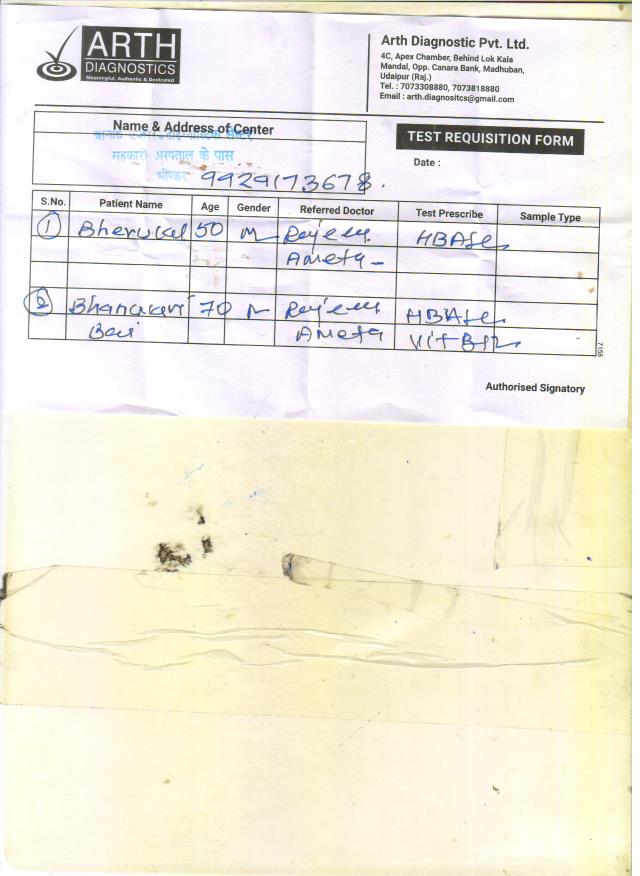 ARTH
DIAGNOSTICS
Meaningful, Authentic & Dedicated
Arth Diagnostic Pvt. Ltd.
4C, Apex Chamber, Behind Lok Kala
Mandal, Opp. Canara Bank, Madhuban,
Udaipur (Raj.)
Tel. : 7073308880, 7073818880
Email : arth.diagnositcs@gmail.com
Name & Address of Center
सहकारी अस्पताल के पास
भीण्डर 9929173678.
TEST REQUISITION FORM
Date :
S.No. Patient Name Age Gender Referred Doctor Test Prescribe Sample Type
1 Bherulal 50 M
Ameta
2 70 M
Bai Ameta Vit B12
7158
Authorised Signatory